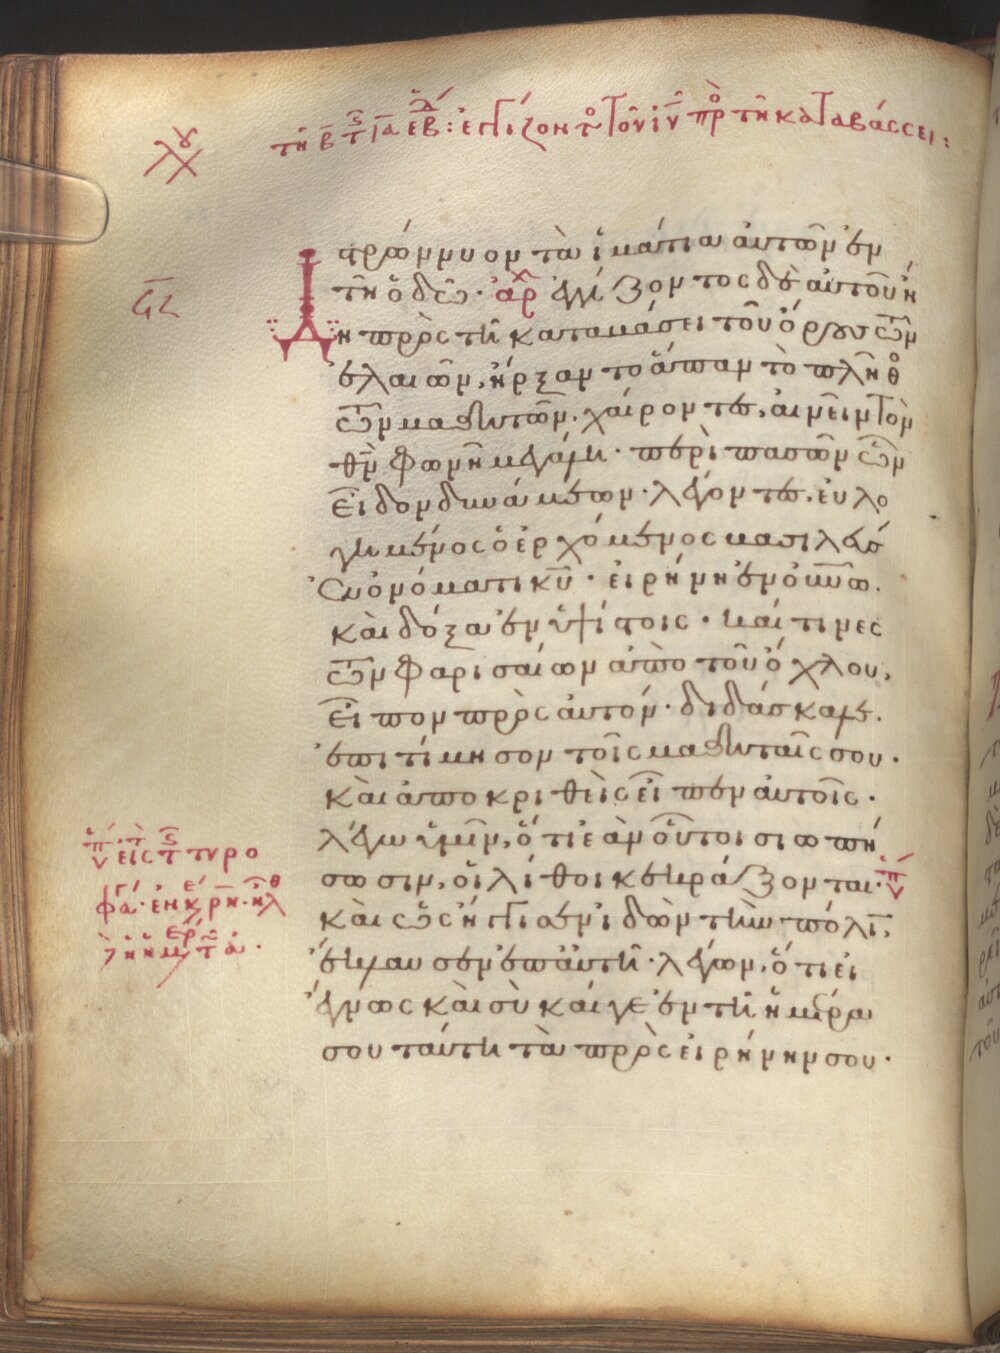 ἐγγίζοντος τὸν ἰν πρὸ τῆ καταβάσσει:
στρώννυον τὰ ἱμάτια αὐτῶν ἐν
τῆ ὁδῶ. ἀρχ ἐγγίζοντος δὲ αὐτοῦ ἤ
δη πρὸς τῆ καταβάσει τοῦ ὄρους τῶν
ἐλαιῶν, ἤρξαντο ἅπαν τὸ πλῆθο
τῶν μαθητῶν. χαίροντες, αἰνεῖν τὸν
θν φωνῆ μεγάλη. περὶ πασῶν ὧν
εἶδον δυνάμεων. λέγοντες, εὐλο
γημένος ὁ ἐρχόμενος βασιλεὺς
ἐν ὀνόματι κυ. εἰρήνη ἐν οὐνω.
καὶ δόξα ἐν ὑψίστοις. καί τινες
τῶν φαρισαίων ἀπὸ τοῦ ὄχλου,
εἶπον πρὸς αὐτόν. διδάσκαλε.
ἐπιτίμησον τοῖς μαθηταῖς σου.
καὶ ἀποκριθεὶς εἶπεν αὐτοῖς.
λέγω ὑμῖν, ὅτι ἐὰν οὗτοι σιωπή
σωσιν, οἱ λίθοι κεκράξονται.
καὶ ὡς ἤγγισεν ἰδὼν τὴν πόλι,
ἔκλαυσεν ἐπ αὐτῆ. λέγων, ὅτι εἰ
ἔγνως καὶ σὺ καί γε ἐν τῆ ἡμέρα
σου ταύτη τὰ πρὸς εἰρήνην σου.